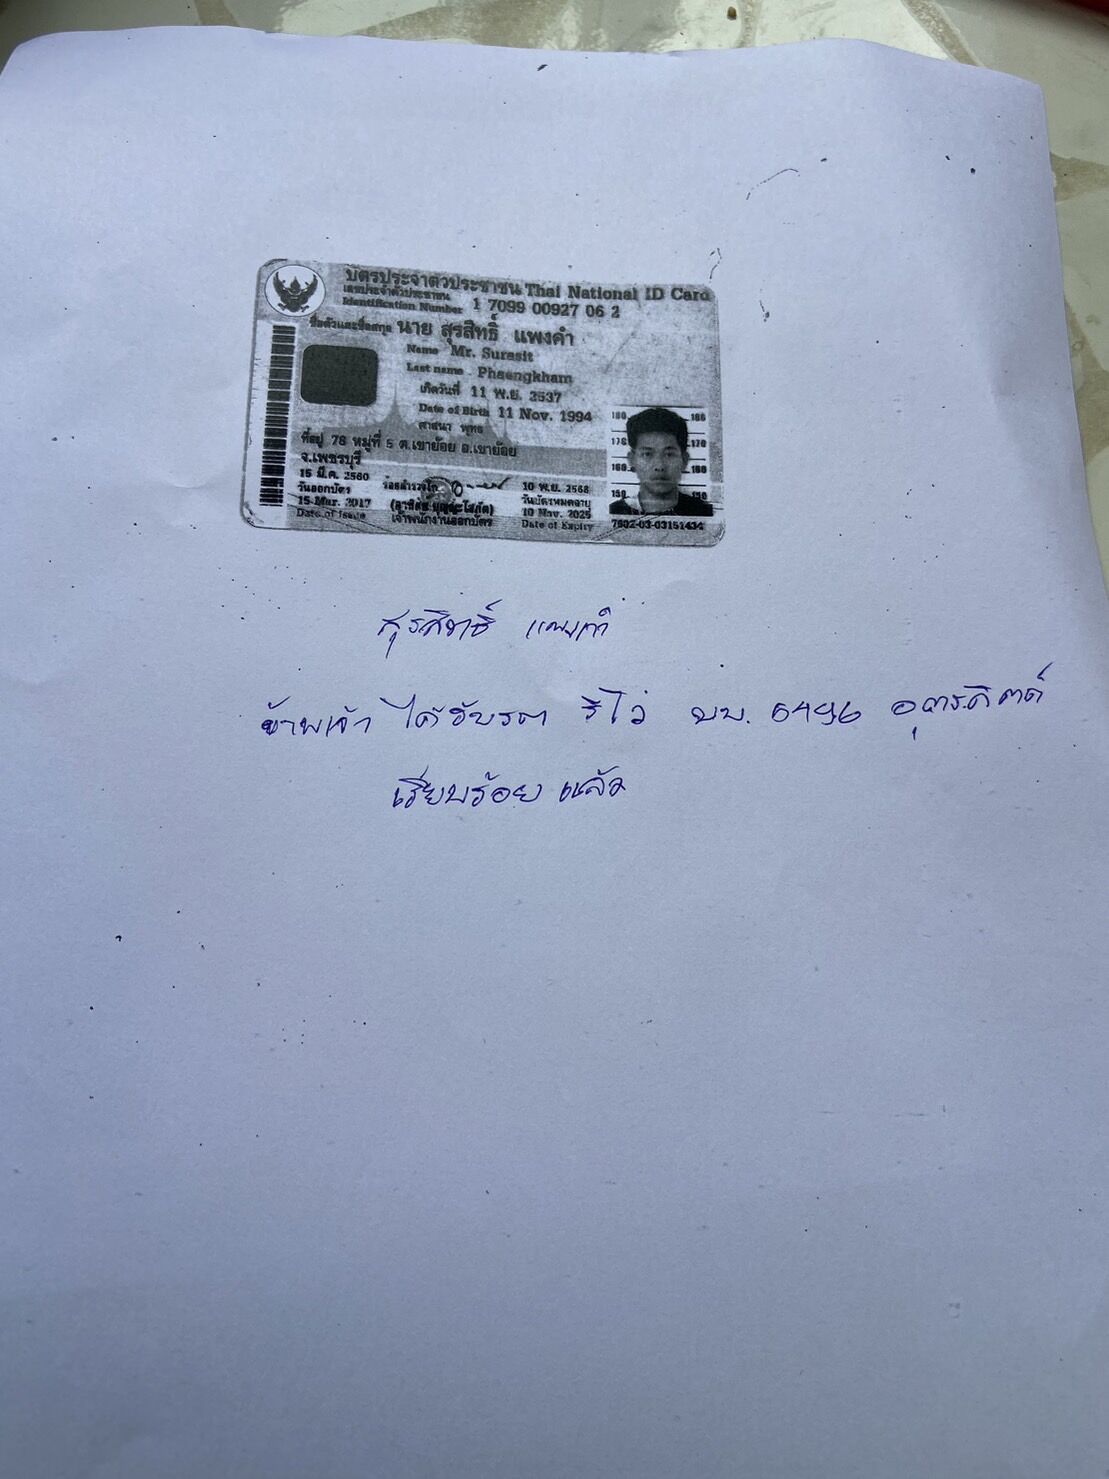 บัตรประจำตัวประชาชน Thai National ID Card
เลขประจำตัวประชาชน
Identification Number 1 7099 00927 06 2
ชื่อตัวและชื่อสกุล นาย สุรสิทธิ์ แพงคำ
Name Mr. Surasit
Last name Phaengkham
เกิดวันที่ 11 พ.ย. 2537
Date of Birth 11 Nov. 1994
ศาสนา พุทธ
ที่อยู่ 78 หมู่ที่ 5 ต.เขาย้อย อ.เขาย้อย
จ.เพชรบุรี
15 มี.ค. 2560
วันออกบัตร
15 Mar. 2017
Date of Issue
เจ้าพนักงานออกบัตร
10 พ.ย. 2568
วันบัตรหมดอายุ
10 Nov. 2025
Date of Expiry
180 180
170 170
160 160
150 150
7602-03-03151434
สุรสิทธิ์ แพงคำ
ข้าพเจ้า ได้รับรถ รีโว่ บบ. 6496 อุตรดิตถ์
เรียบร้อย แล้ว